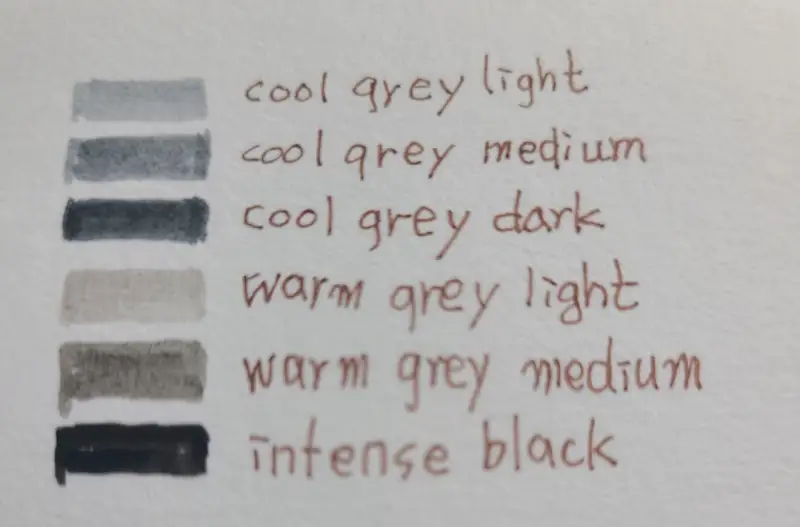 cool grey light
cool grey medium
cool grey dark
warm grey light
warm grey medium
intense black